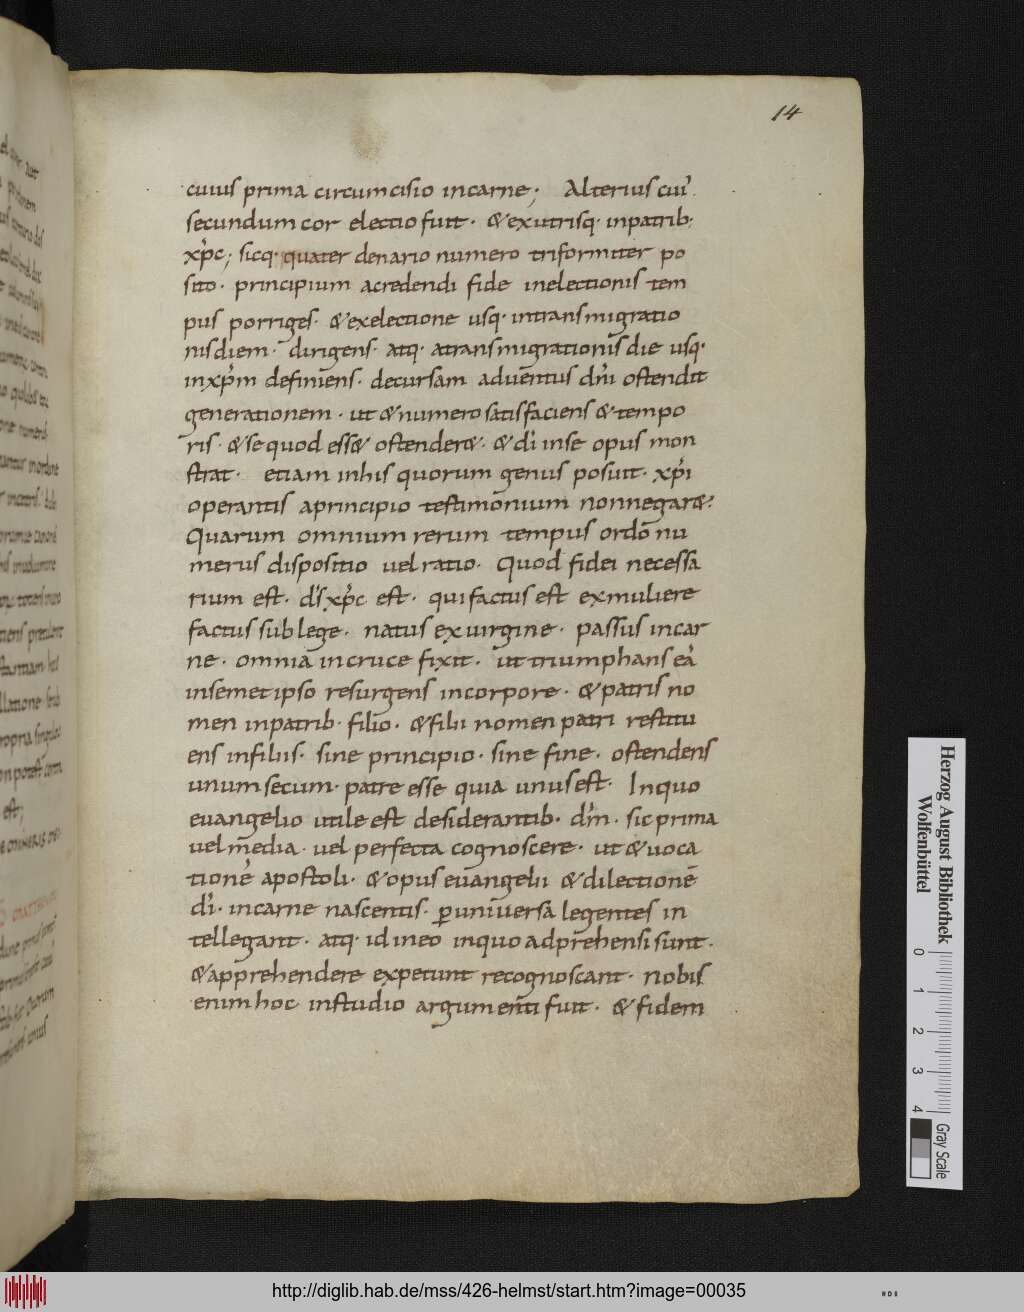 14
cuius prima circumcisio incarne; Alterius cui'
secundum cor electio fuit. & exutrisq. inpatrib;
xp̄c; sicq. quater denario numero triformiter po
sito. principium acredendi fide inelectionis tem
pus porriges. & exelectione usq. intransmigratio
nis diem. dirigens. atq. atransmigrationis die usq.
inxp̄m definiens. decursam aduentus dn̄i ostendit
generationem. ut & numero satisfaciens & tempo
ris. & se quod ess& ostender&. & dī inse opus mon
strat. etiam inhis quorum genus posuit. xp̄i
operantis aprincipio testimonium nonnegar&.
Quarum omnium rerum tempus ordo nu
merus dispositio uel ratio. Quod fidei necessa
rium est. dī's xp̄c est. qui factus est exmuliere
factus sub lege. natus ex uirgine. passus incar
ne. omnia incruce fixit. ut triumphans ea'
insemet ipso resurgens incorpore. & patris no
men inpatrib. filio. & filii nomen patri restitu
ens infiliis. sine principio. sine fine. ostendens
unum secum. patre esse quia unus est. Inquo
euangelio utile est desiderantib. dm̄. sic prima
uel media. uel perfecta cognoscere. ut & uoca
tione' apostoli. & opus euangelii & dilectionē
dī. incarne nascentis. ꝑuniuersa legentes in
tellegant. atq. id in eo inquo adprehensi sunt.
& apprehendere expetunt recognoscant. nobis
enim hoc instudio argumenti fuit. & fidem
Herzog August Bibliothek
Wolfenbüttel
0 1 2 3 4
Gray Scale
http://diglib.hab.de/mss/426-helmst/start.htm?image=00035